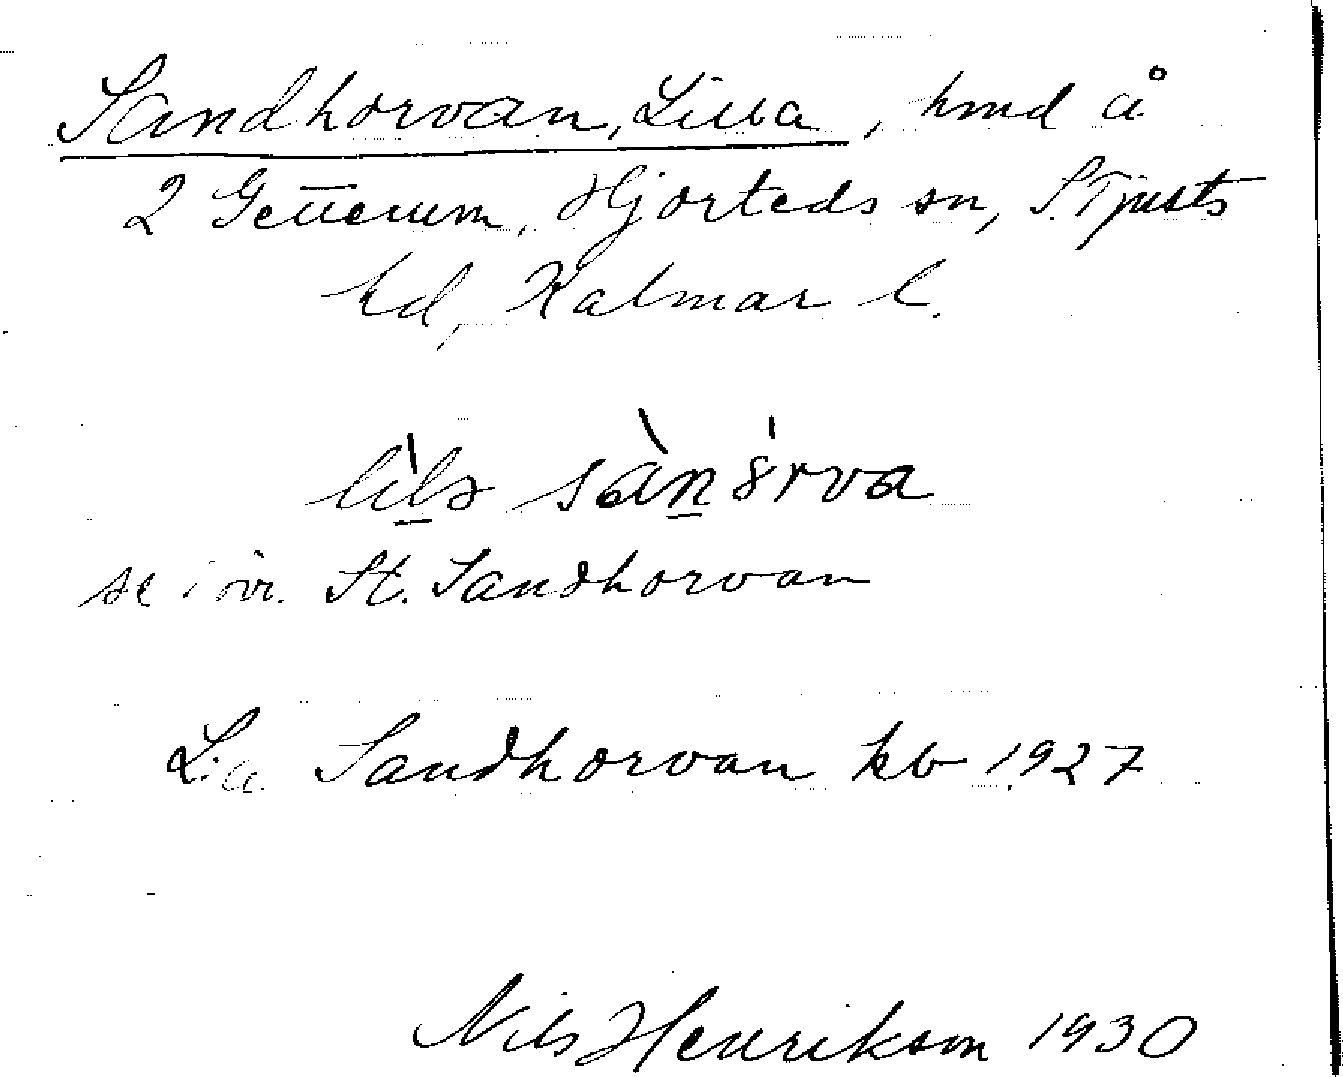 Sandhorvan, Lilla, hmd å
2 Getterum, Hjorteds sn, S. Tjusts
hd, Kalmar l.
se i övr. St. Sandhorvan
L:a Sandhorvan kb 1927
Nils Henrikson 1930